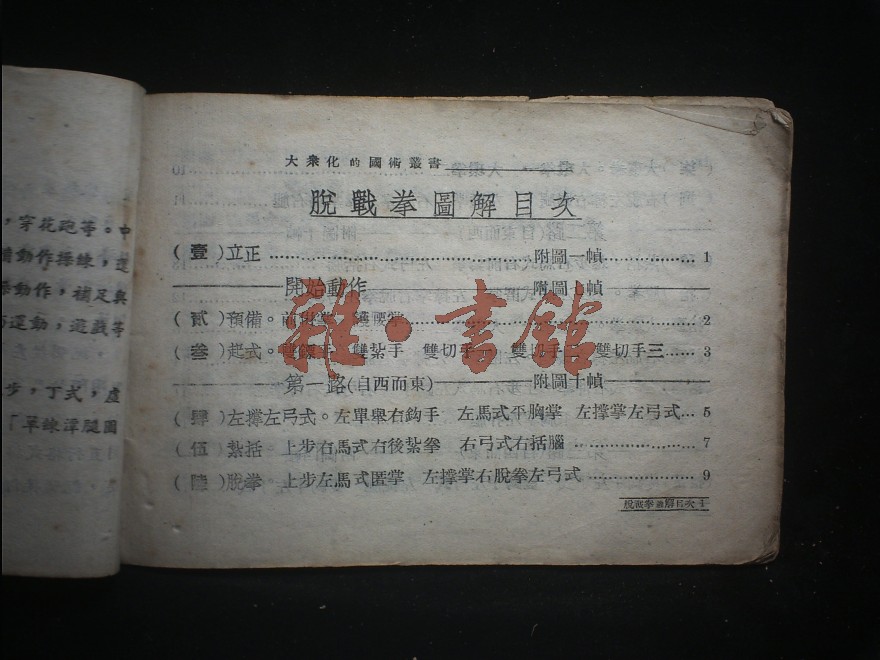 大衆化的國術叢書
脫戰拳圖解目次
(壹)立正……附圖一幀……1
開始動作 附圖七幀
(貳)預備。前 掌 護腰掌……2
(叁)起式。雙 手 雙紮手 雙切手一 雙切手二 雙切手三……3
第一路(自西而東) 附圖十幀
(肆)左撐左弓式。左單舉右鈎手 左馬式平胸掌 左撐掌左弓式…5
(伍)紮括 上步右馬式右後紮拳 右弓式右括腦……7
(陸)脫拳。上步左馬式匿掌 左撐掌右脫拳左弓式……9
脫戰拳圖解目次 1
，穿花砲等。中
動作操練，
動作，補足與
運動，遊戲等
步，丁式，虛
「單練潭腿圖
雜·書館